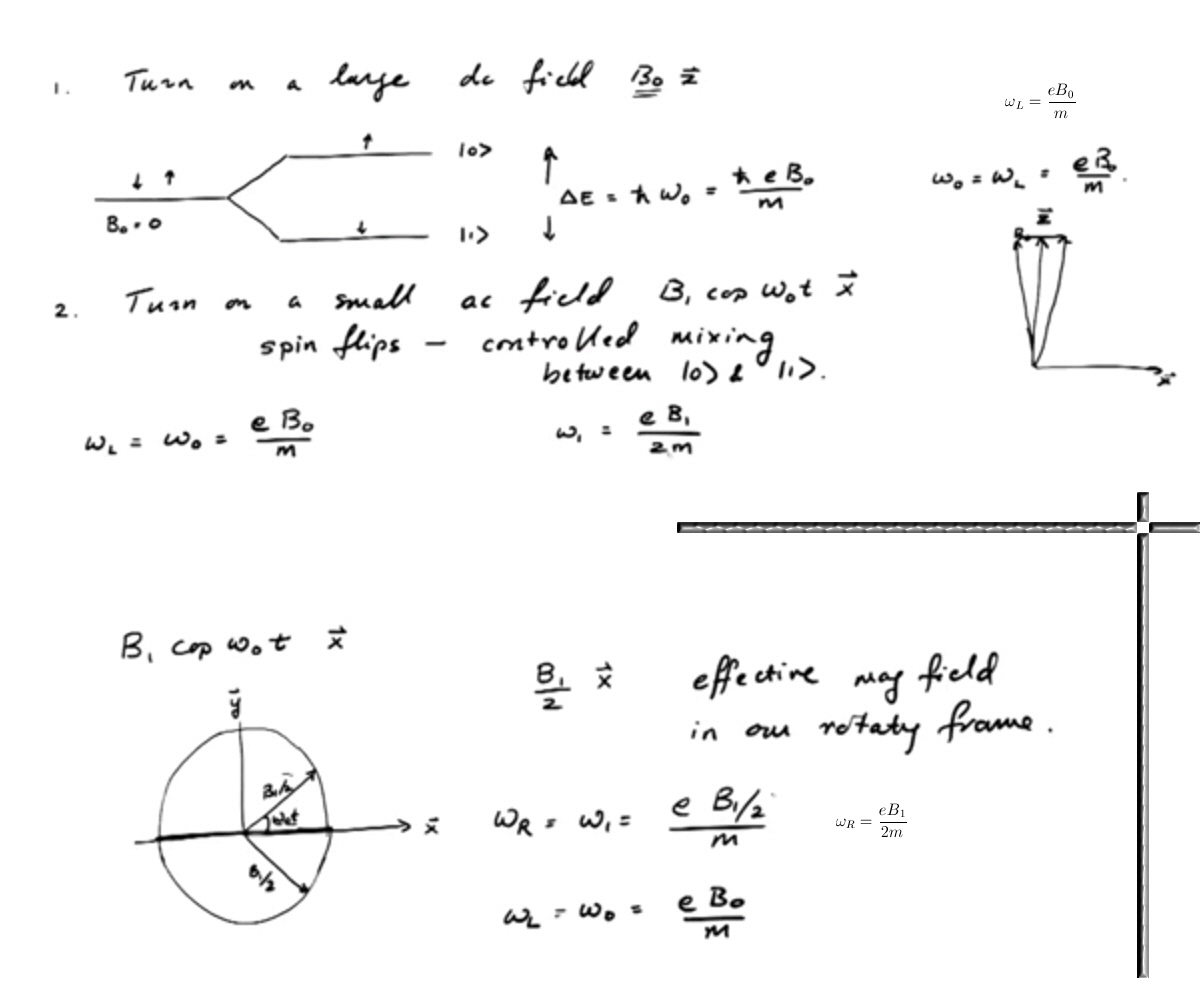 1. Turn on a large dc field B₀ z⃗
ω_L = eB₀/m
↓ ↑
B₀ = 0
↑ |0>
↓ |1>
ΔE = ħ ω₀ = ħ e B₀/m
ω₀ = ω_L = e B₀/m.
z⃗
x⃗
2. Turn on a small ac field B₁ cos ω₀t x⃗
spin flips – controlled mixing
between |0> & |1>.
ω_L = ω₀ = e B₀/m
ω₁ = e B₁/2m
B₁ cos ω₀t x⃗
y⃗
B₁/2
ω₀t
x⃗
B₁/2
B₁/2 x⃗ effective mag field
in our rotaty frame.
ω_R = ω₁ = e B₁/2/m
ω_R = eB₁/2m
ω_L = ω₀ = e B₀/m